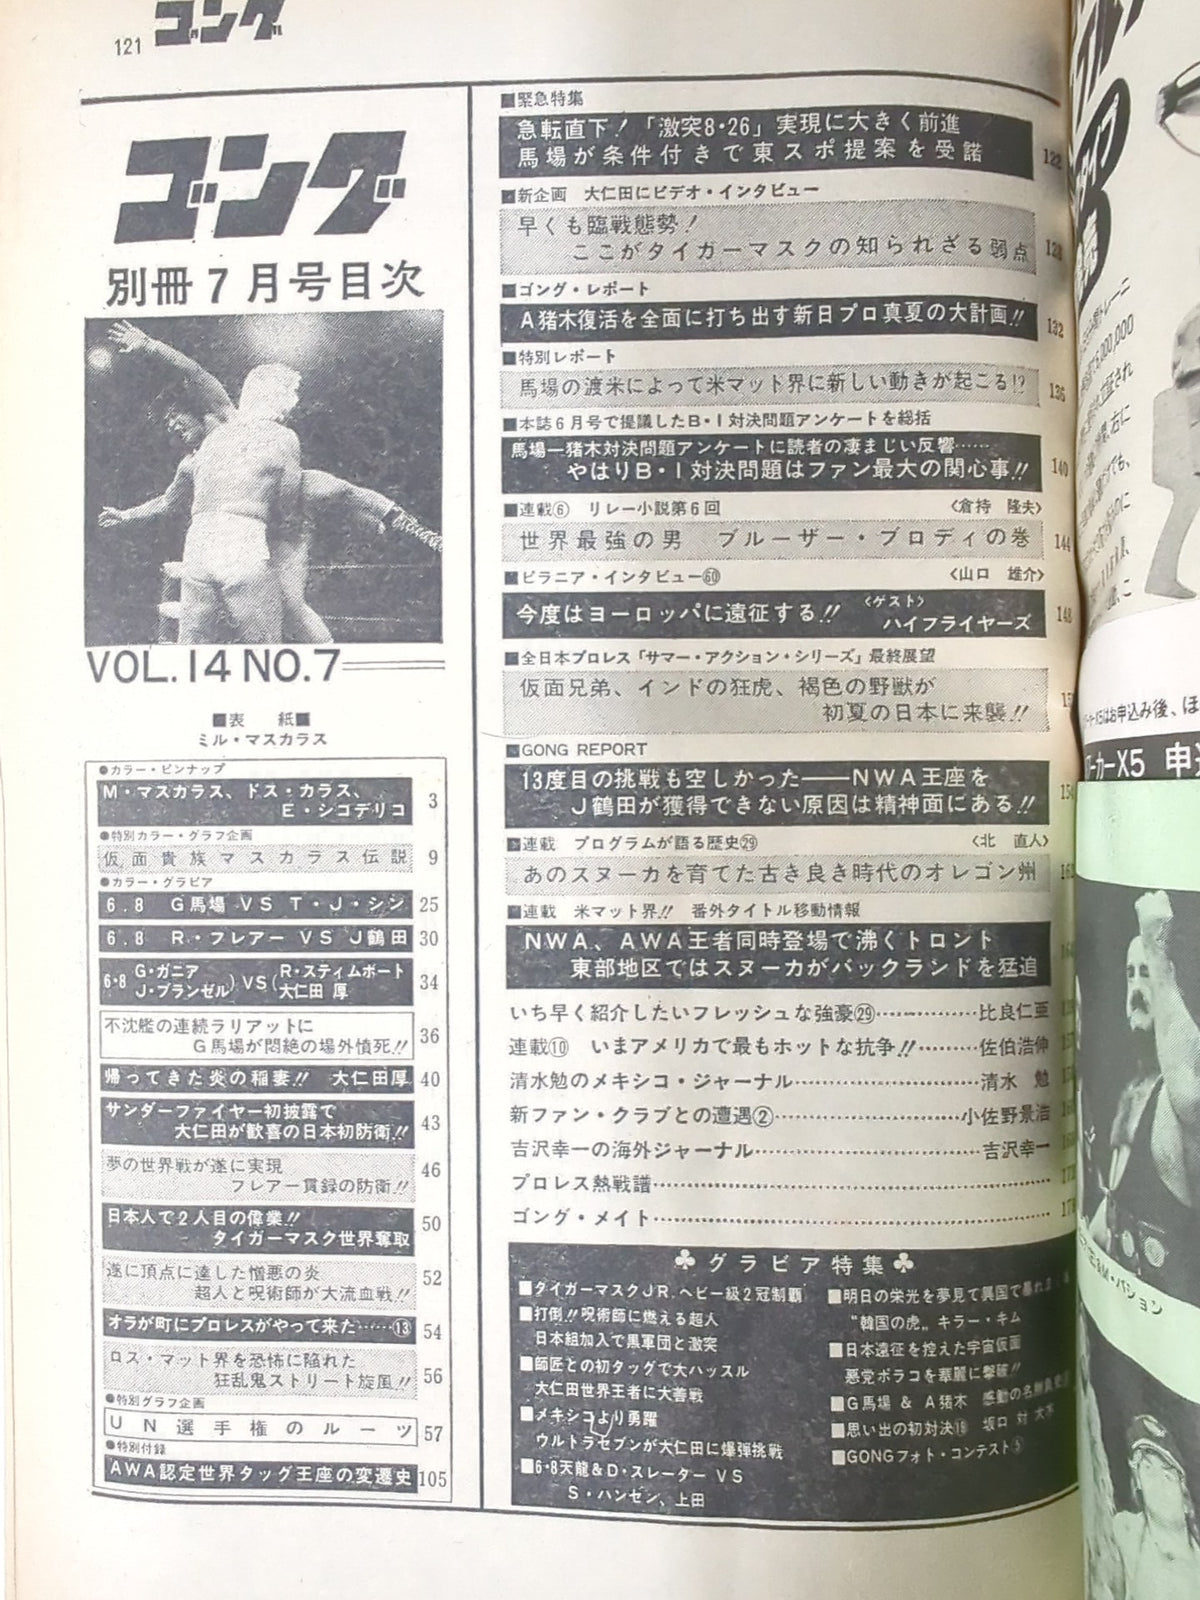 121 ゴング
ゴング
別冊7月号目次
VOL.14 NO.7
■表　紙■
ミル・マスカラス
●カラー・ピンナップ
M・マスカラス、ドス・カラス、
E・シコデリコ 3
●特別カラー・グラフ企画
仮面貴族マスカラス伝説 9
●カラー・グラビア
6.8 G馬場 VS T・J・シン 25
6.8 R・フレアー VS J鶴田 30
6・8 (G・ガニア J・ブランゼル) VS (R・スティムボート 大仁田 厚 34
不沈艦の連続ラリアットに
G馬場が悶絶の場外憤死!! 36
帰ってきた炎の稲妻!! 大仁田厚 40
サンダーファイヤー初披露で
大仁田が歓喜の日本初防衛!! 43
夢の世界戦が遂に実現
フレアー貫録の防衛!! 46
日本人で2人目の偉業!!
タイガーマスク世界奪取 50
遂に頂点に達した憎悪の炎
超人と呪術師が大流血戦!! 52
オラが町にプロレスがやって来た……⑬ 54
ロス・マット界を恐怖に陥れた
狂乱鬼ストリート旋風!! 56
●特別グラフ企画
UN選手権のルーツ 57
●特別付録
AWA認定世界タッグ王座の変遷史 105
■緊急特集
急転直下!「激突8・26」実現に大きく前進
馬場が条件付きで東スポ提案を受諾 122
■新企画 大仁田にビデオ・インタビュー
早くも臨戦態勢!
ここがタイガーマスクの知られざる弱点 128
■ゴング・レポート
A猪木復活を全面に打ち出す新日プロ真夏の大計画!! 132
■特別レポート
馬場の渡米によって米マット界に新しい動きが起こる!? 136
■本誌6月号で提議したB・I対決問題アンケートを総括
馬場—猪木対決問題アンケートに読者の凄まじい反響……
やはりB・I対決問題はファン最大の関心事!! 140
■連載⑥ リレー小説第6回 〈倉持　隆夫〉
世界最強の男 ブルーザー・ブロディの巻 144
■ピラニア・インタビュー⑥⓪ 〈山口　雄介〉
今度はヨーロッパに遠征する!! 〈ゲスト〉ハイフライヤーズ 148
■全日本プロレス「サマー・アクション・シリーズ」最終展望
仮面兄弟、インドの狂虎、褐色の野獣が
初夏の日本に来襲!!
■GONG REPORT
13度目の挑戦も空しかった——NWA王座を
J鶴田が獲得できない原因は精神面にある!! 154
■連載 プログラムが語る歴史㉙ 〈北　直人〉
あのスヌーカを育てた古き良き時代のオレゴン州
■連載 米マット界!! 番外タイトル移動情報
NWA、AWA王者同時登場で沸くトロント
東部地区ではスヌーカがバックランドを猛追
いち早く紹介したいフレッシュな強豪㉙…………比良仁亜
連載⑩ いまアメリカで最もホットな抗争!!………佐伯浩伸
清水勉のメキシコ・ジャーナル…………………清水　勉
新ファン・クラブとの遭遇②…………………小佐野景浩
吉沢幸一の海外ジャーナル……………………吉沢幸一
プロレス熱戦譜……………………
ゴング・メイト……………………
♣グラビア特集♣
■タイガーマスクJR.ヘビー級2冠制覇
■打倒!!呪術師に燃える超人
日本組加入で黒軍団と激突
■師匠との初タッグで大ハッスル
大仁田世界王者に大善戦
■メキシコより勇躍
ウルトラセブンが大仁田に爆弾挑戦
■6・8天龍&D・スレーター VS
S・ハンセン、上田
■明日の栄光を夢見て異国で暴れ
“韓国の虎” キラー・キム
■日本遠征を控えた宇宙仮面
悪党ボラコを華麗に撃破!!
■G馬場 & A猪木 感動の名勝負
■思い出の初対決⑲ 坂口 対 大木
■GONGフォト・コンテスト⑤
5,000,000
はお申込み後、ほ
ーカーX5 申
M・パション